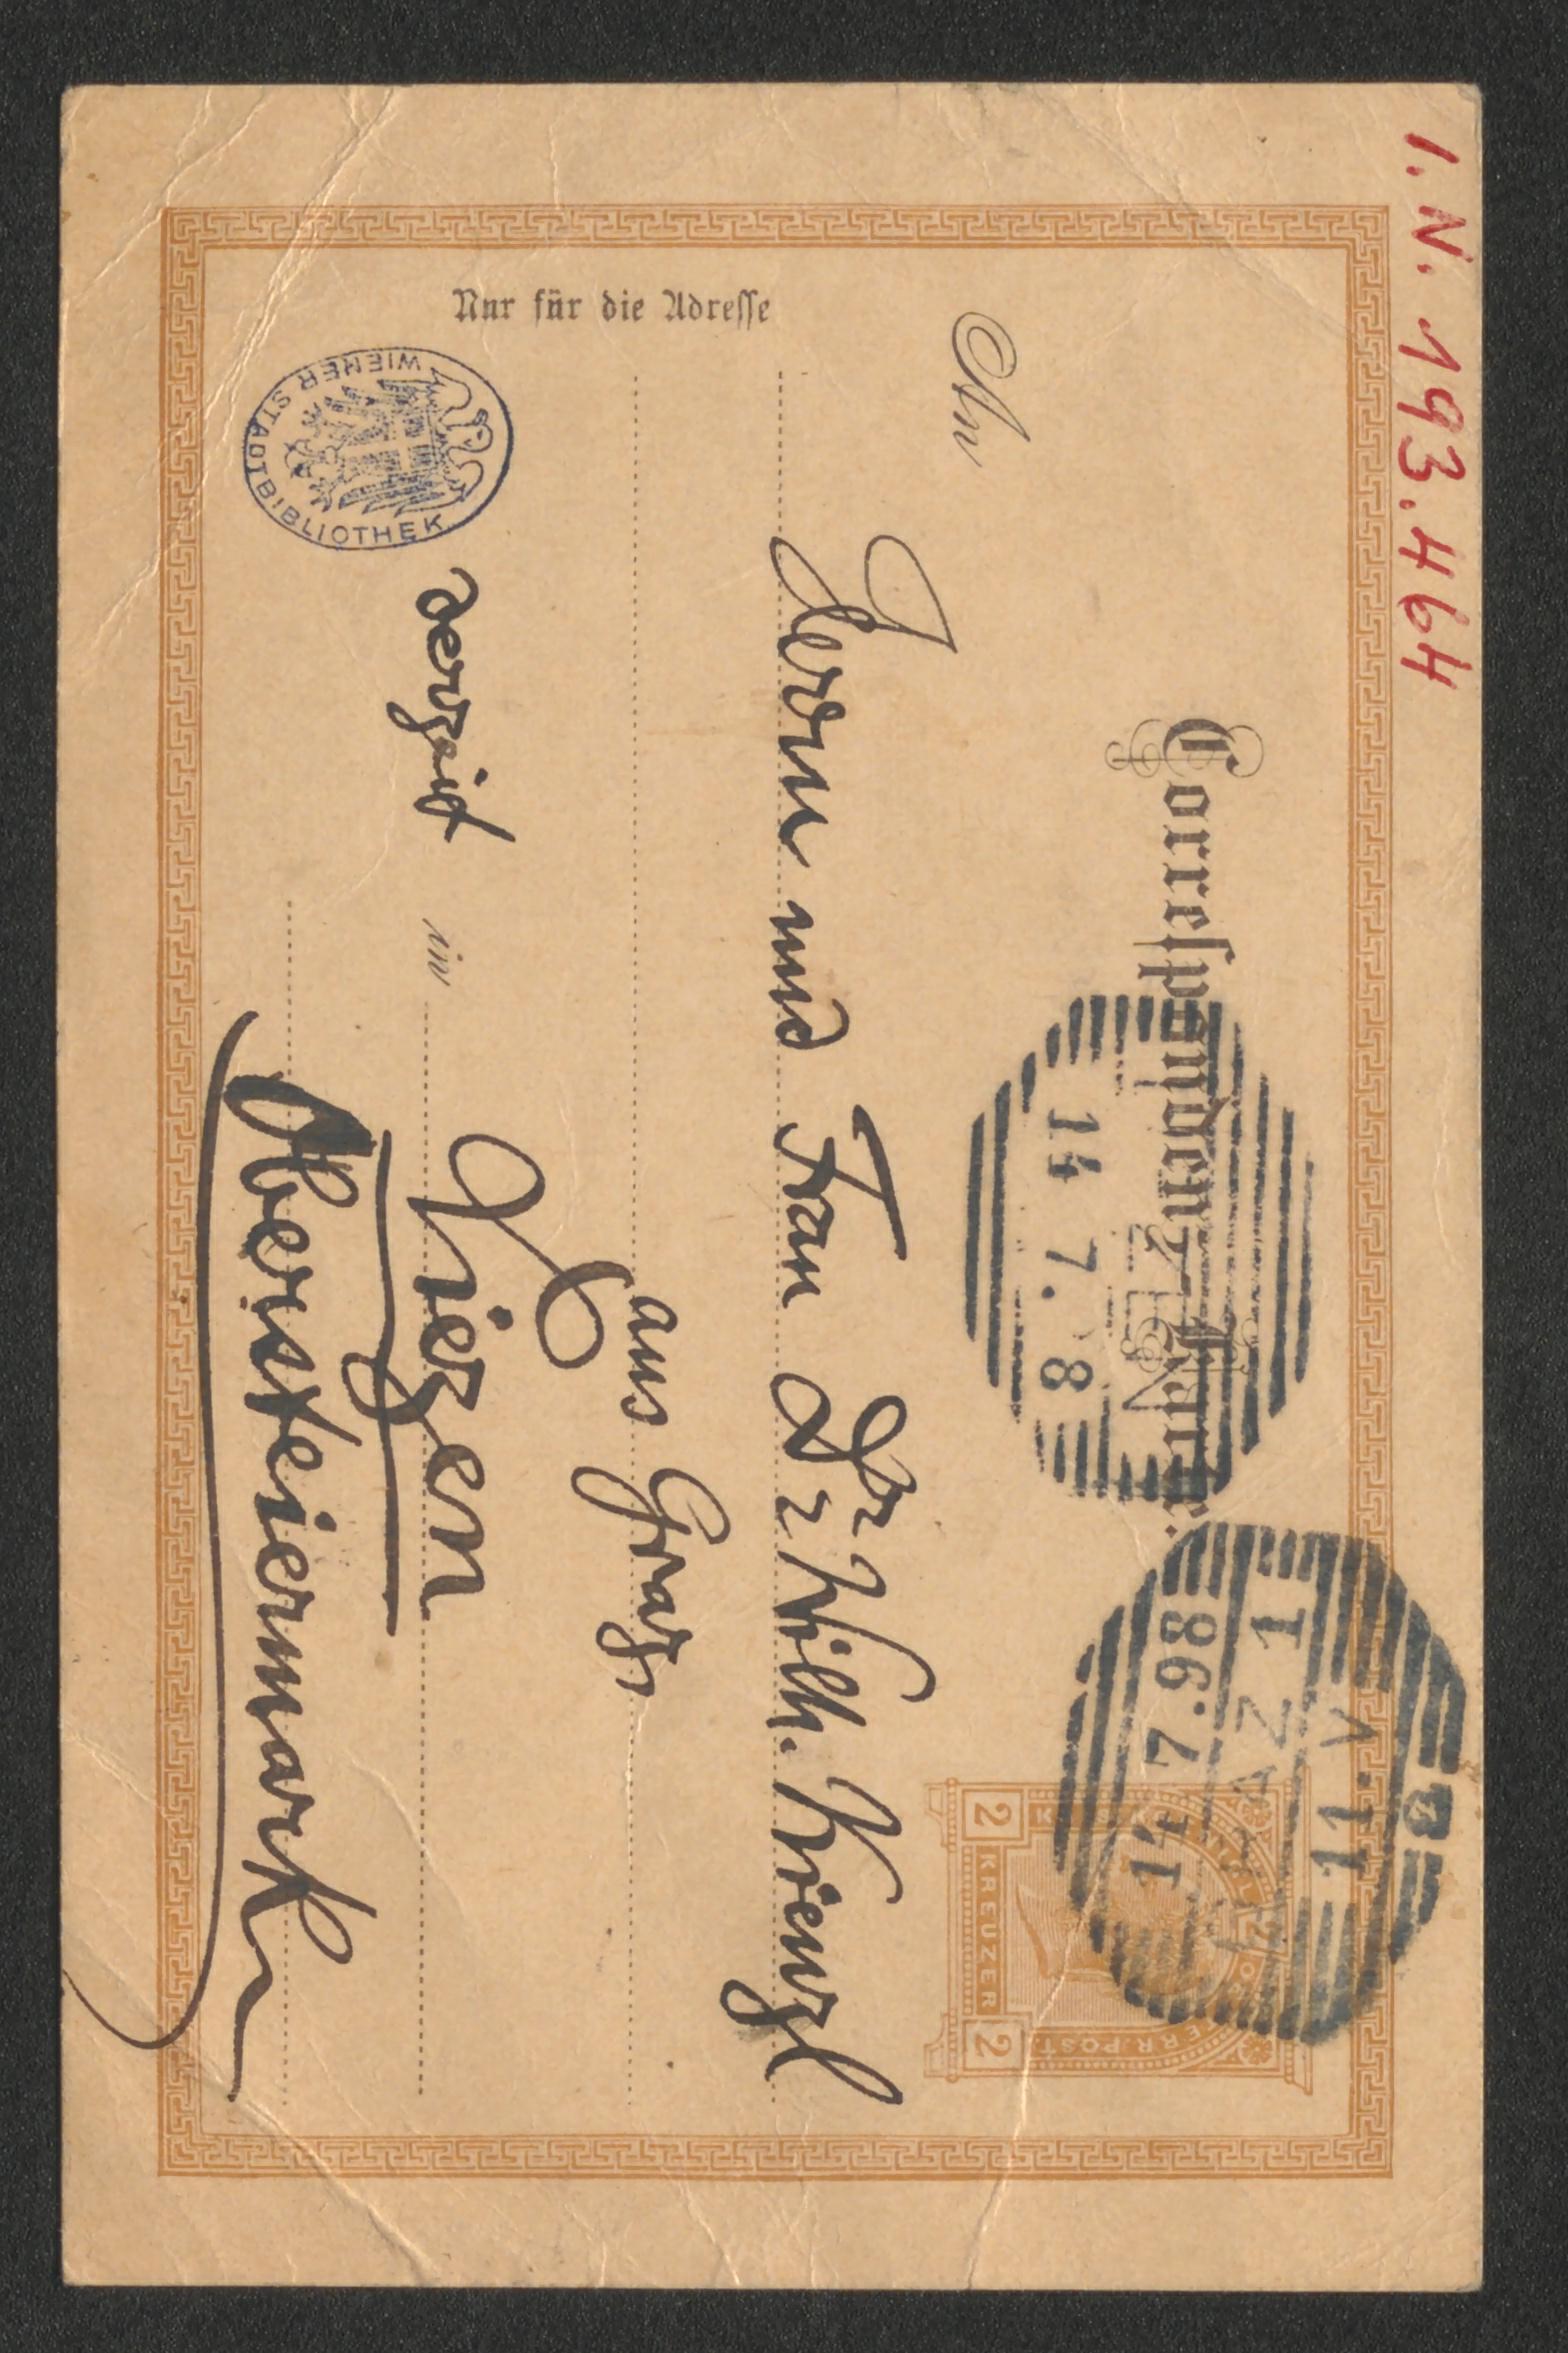 I. N. 193.464
Correspondenz-Karte.
14 7. 8
14 7.98
AZ 1
11.V
2 KREUZER 2
ERR.POST.
An
Herrn und Frau Dr Wilh. Kienzl
aus Graz,
derzeit in Liezen
Obersteiermark
Nur für die Adresse
WIENER STADTBIBLIOTHEK